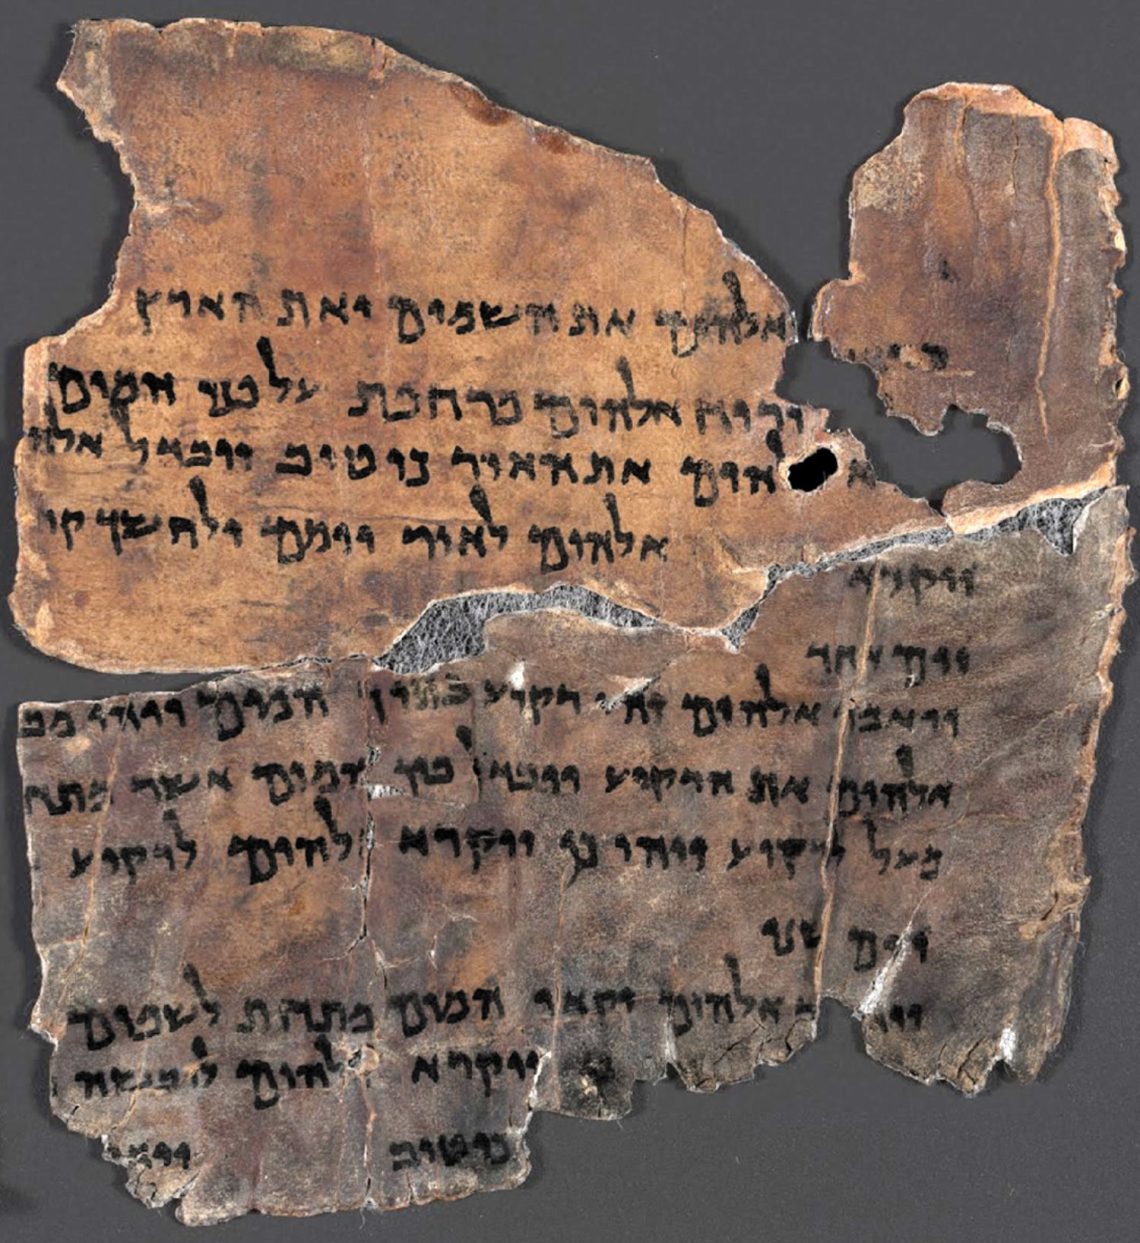 אלהים את השמים ואת הארץ
ורוח אלהים מרחפת על פני המים
אלהים את האור כי טוב ויבדל אלהי
ויקרא אלהים לאור יומם ולחשך קר
יום אחד
ויאמר אלהים יהי רקיע בתוך המים ויהי מב
אלהים את הרקיע ויבדל בין המים אשר מתח
מעל לרקיע ויהי כן ויקרא אלהים לרקיע
יום שני
אלהים יקאו המים מתחת לשמים
ויקרא אלהים ליבשה
כי טוב